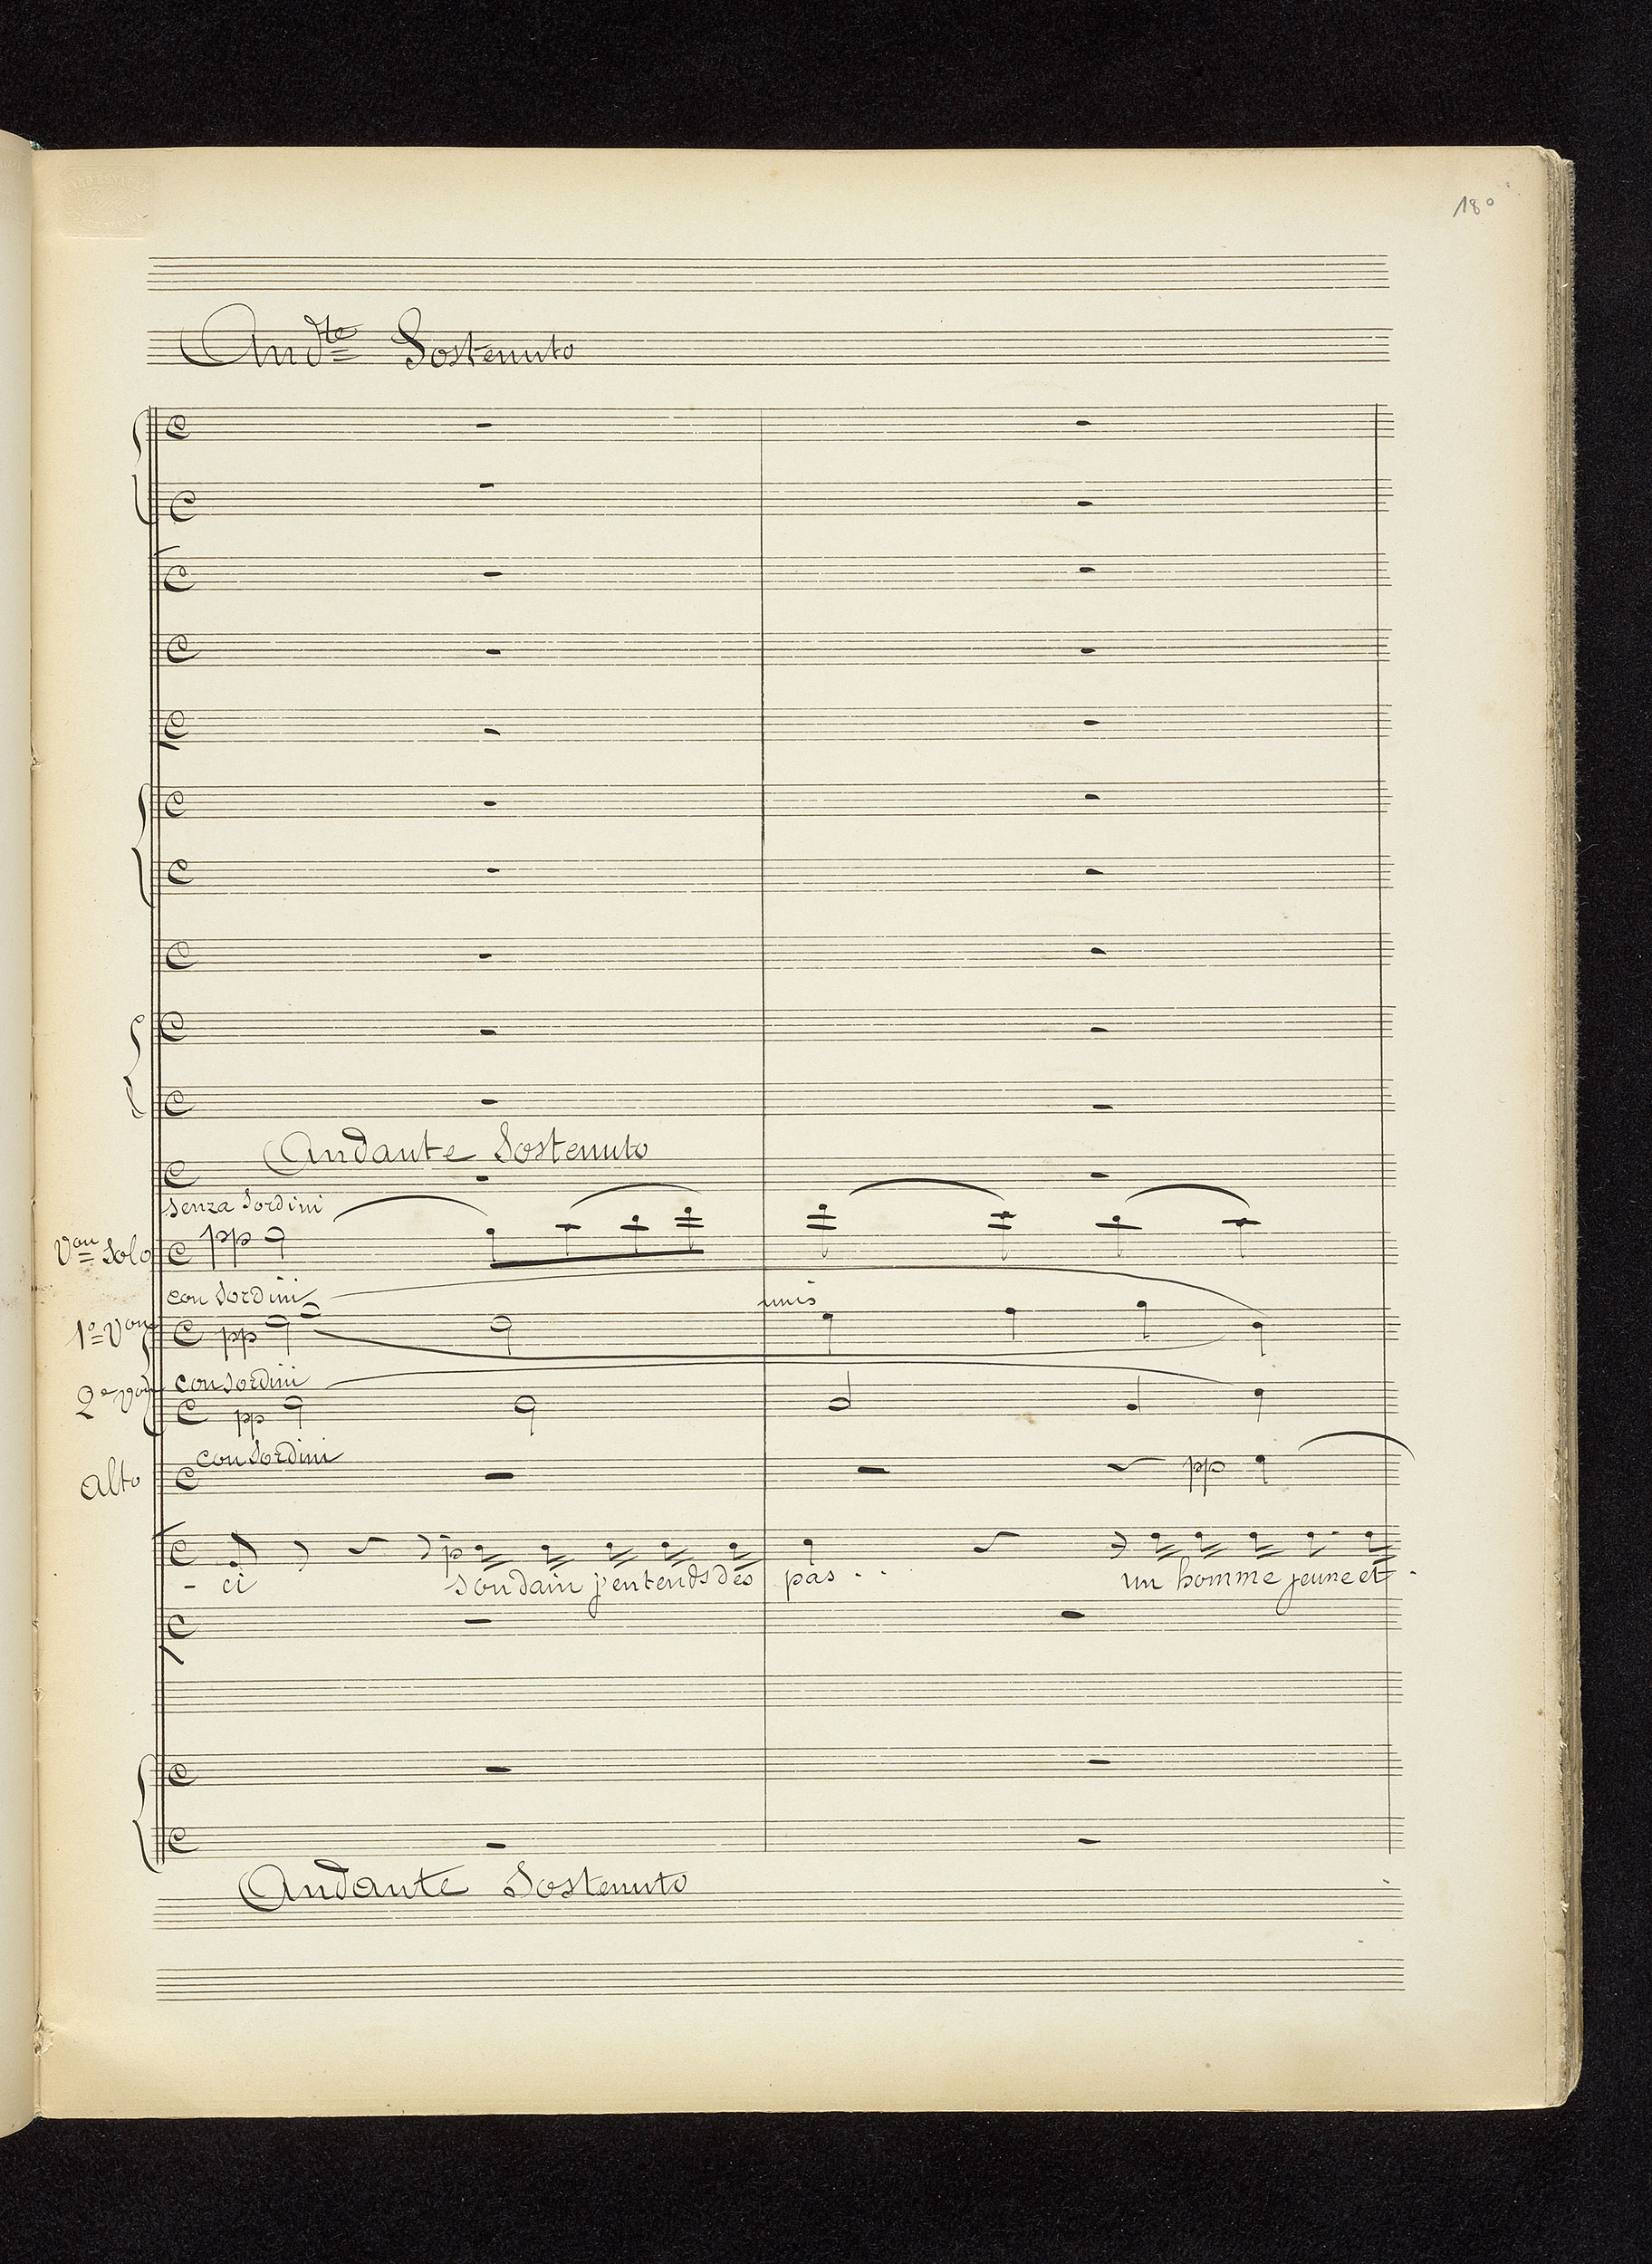 180
Andte Sostenuto
Andante Sostenuto
senza Sordini
Von Solo pp
con Sordini
unis
1o Von pp
con Sordini
2e von pp
con Sordini
alto pp
p
- ci soudain j'entends des pas . . un homme jeune et .
Andante Sostenuto